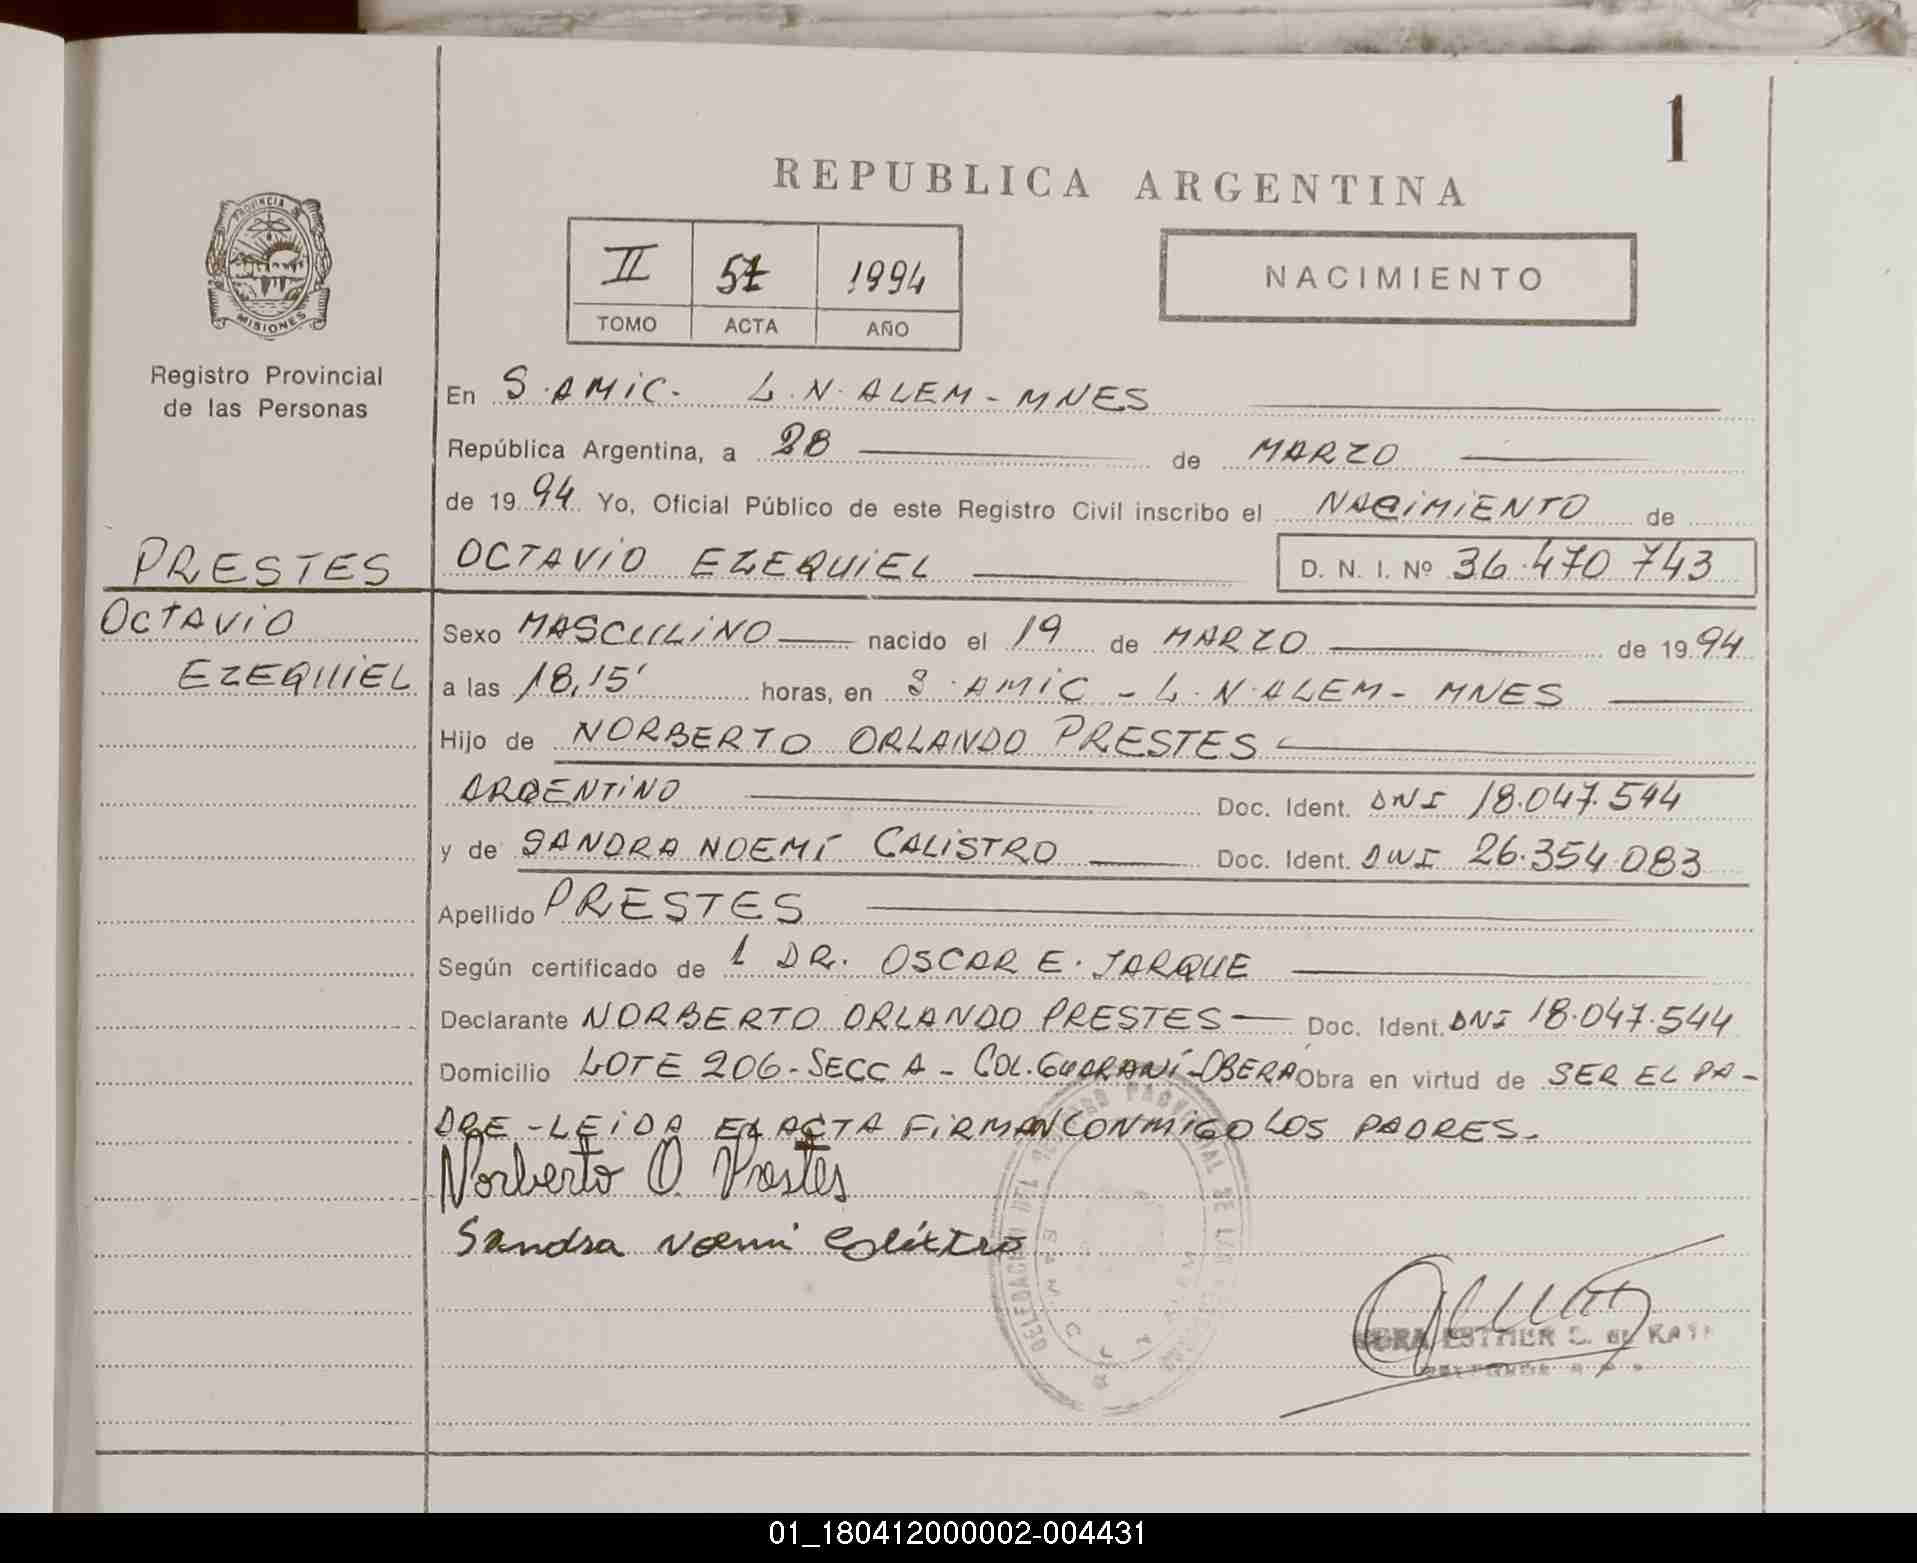 1
REPUBLICA ARGENTINA
PROVINCIA DE
MISIONES
II 51 1994
TOMO ACTA AÑO
NACIMIENTO
Registro Provincial
de las Personas
En S.AMIC. L.N.ALEM-MNES
República Argentina, a 28 de MARZO
de 1994 Yo, Oficial Público de este Registro Civil inscribo el NACIMIENTO de
PRESTES
OCTAVIO EZEQUIEL D. N. I. Nº 36.470 743
OCTAVIO
EZEQUIEL
Sexo MASCULINO nacido el 19 de MARZO de 1994
a las 18,15' horas, en S.AMIC-L.N.ALEM-MNES
Hijo de NORBERTO ORLANDO PRESTES
ARGENTINO Doc. Ident. DNI 18.047.544
y de SANDRA NOEMÍ CALISTRO Doc. Ident. DNI 26.354.083
Apellido PRESTES
Según certificado de 1 DR. OSCAR E. JARQUE
Declarante NORBERTO ORLANDO PRESTES Doc. Ident. DNI 18.047.544
Domicilio LOTE 206-SECC A-COL.GUARANÍ-OBERA Obra en virtud de SER EL PA-
DRE-LEIDA EL ACTA FIRMAN CONMIGO LOS PADRES.
Norberto O. Prestes
Sandra Noemi Calistro
DELEGACION DEL REGISTRO PROVINCIAL DE LAS
ESTHER
01_180412000002-004431